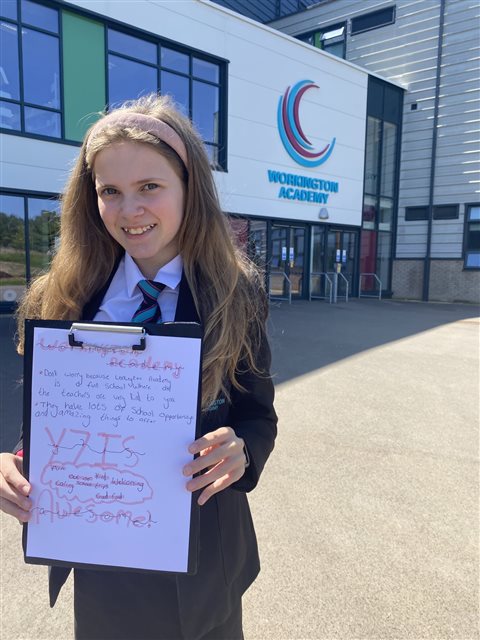 WORKINGTON
ACADEMY
Workington
academy
• Don't worry because workington Academy
is a fun school where all
the teachers are very kind to you.
• They have lots of School opportunities
and amazing things to offer
Y7 IS
fun
kind welcoming
caring school trips
Good food!
Awesome!